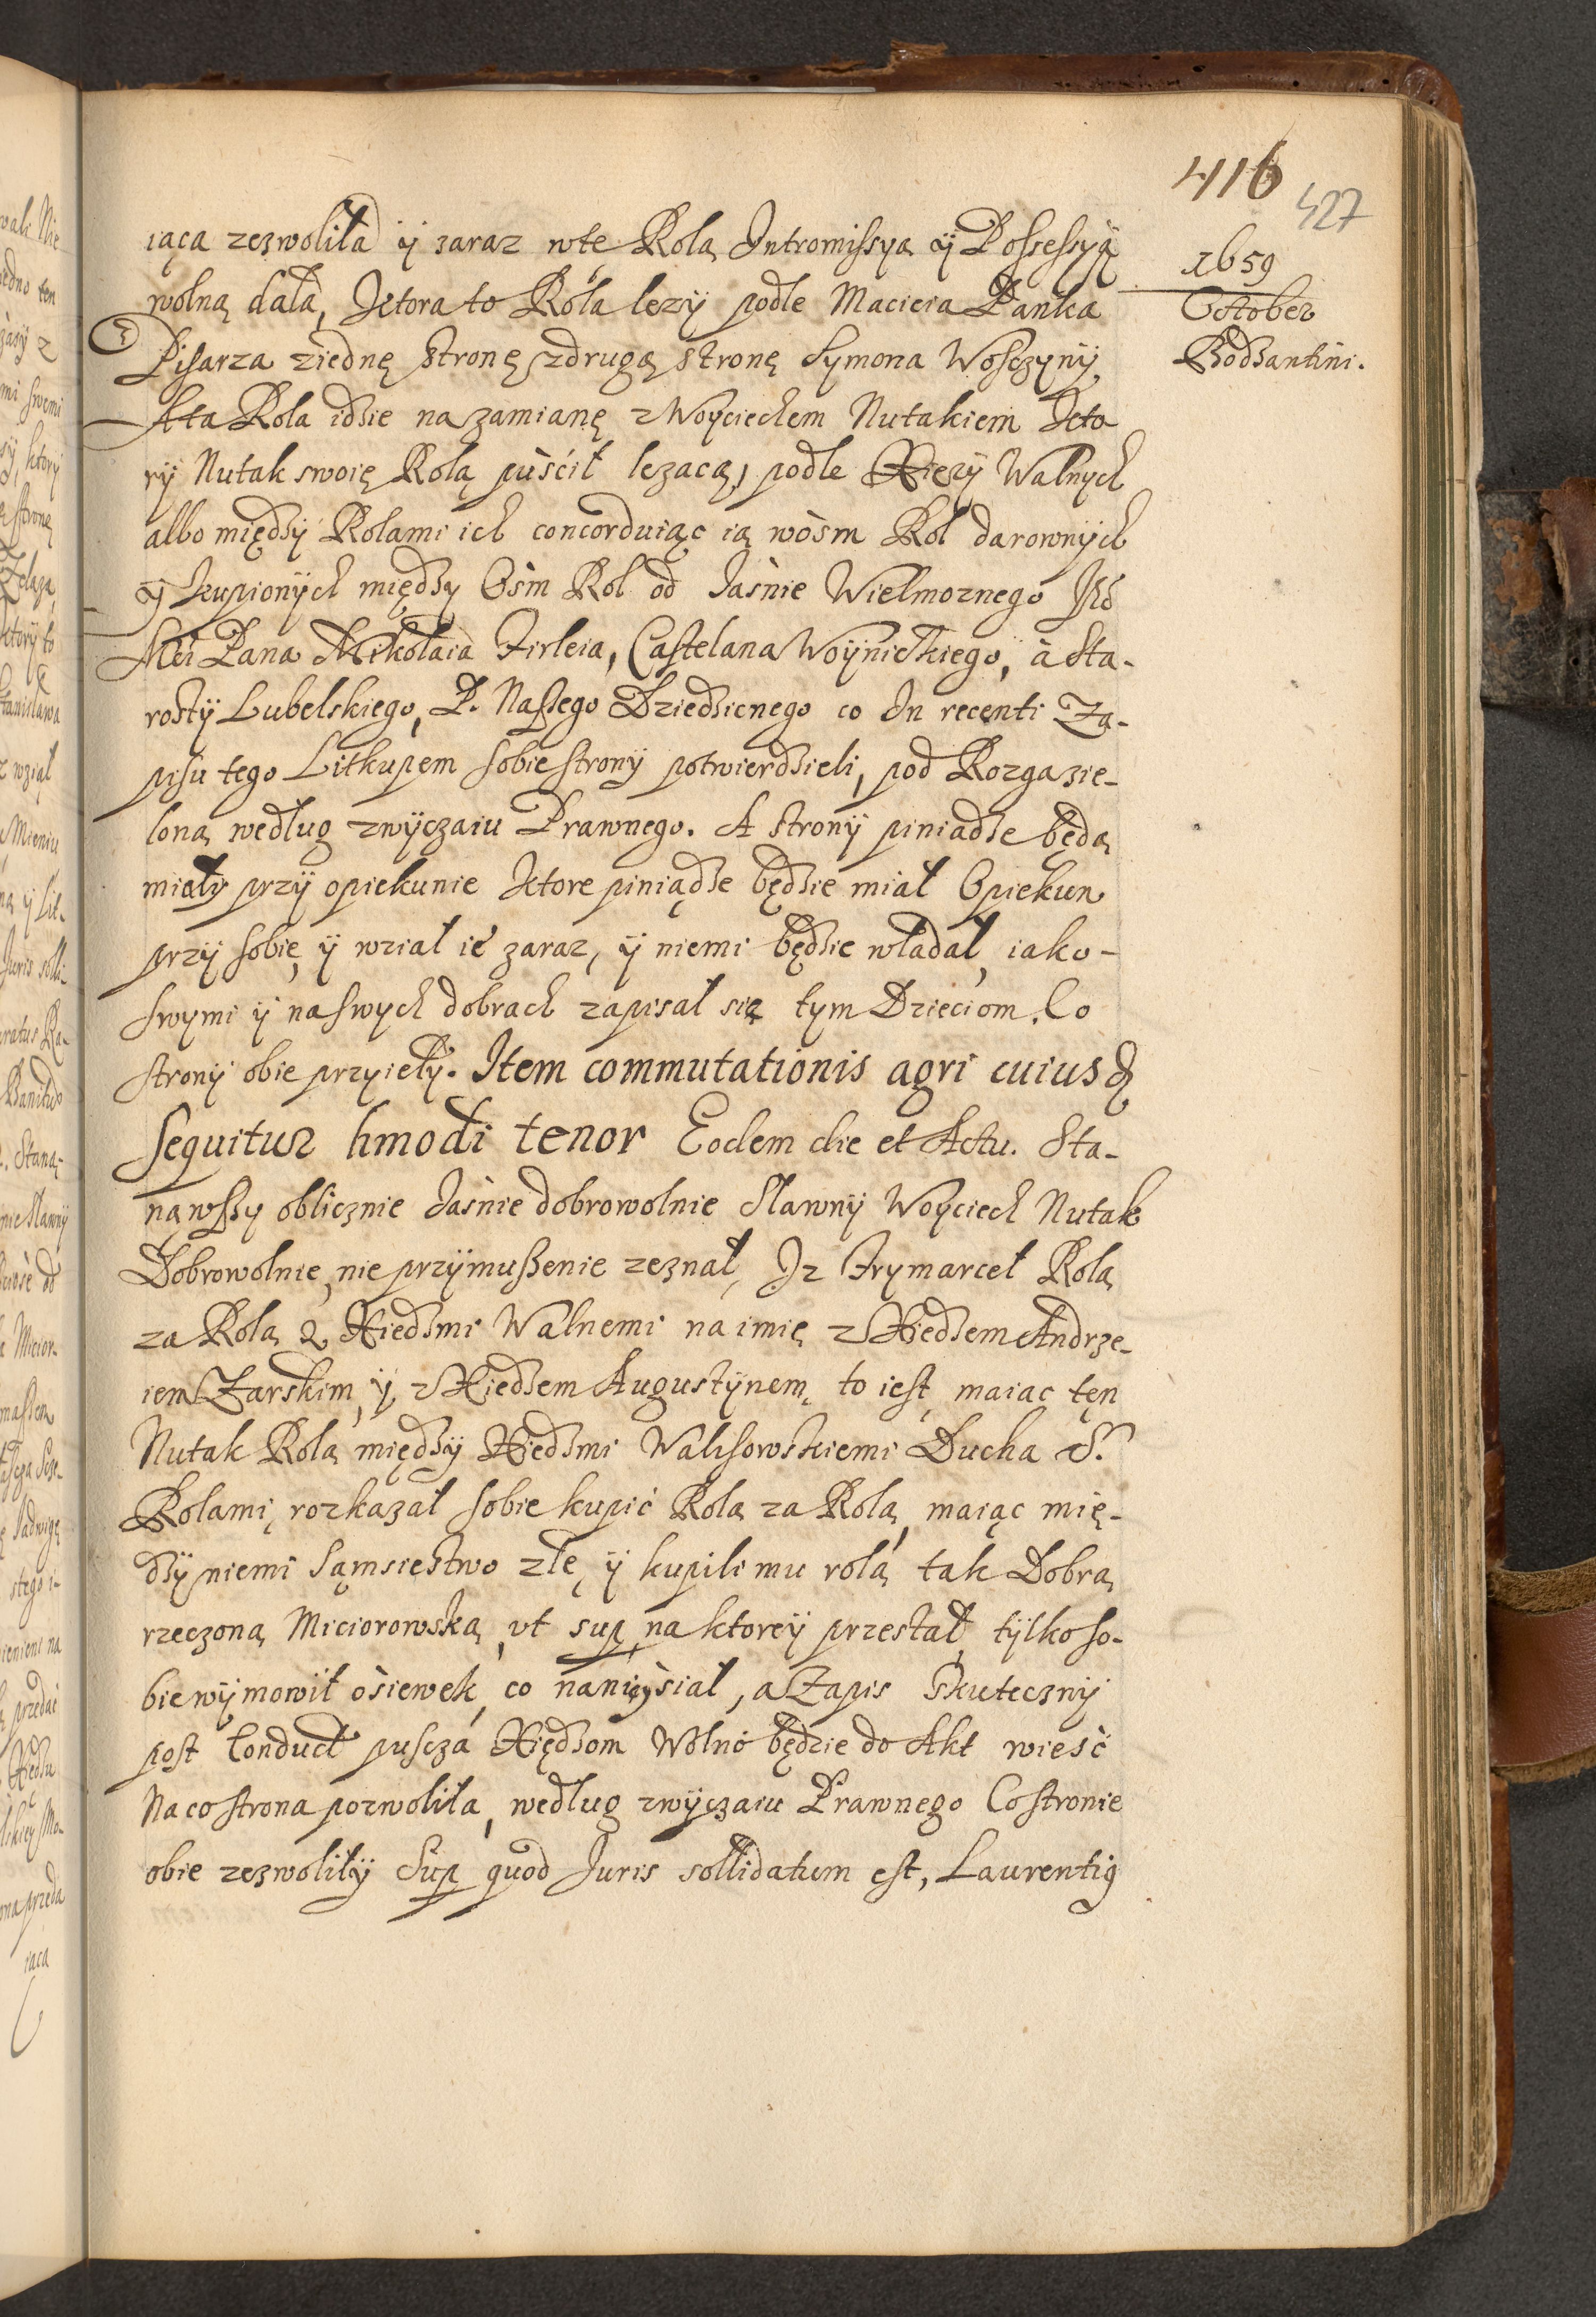 416
427
1659
October
Bodzantini.
iąca zezwoliła ÿ zaraz wte Rolą Intromissyą ÿ Possessyą
wolną dała, Ktora to Rola lezÿ podle Macieia Pańka
Pisarza ziednę stronę zdrugą stronę Symona Wosczynÿ,
A ta Rola idzie na zamianę z Woyciechem Nutakiem Kto
rÿ Nutak swoię Rolą puścił lezacą, podle Xiezÿ Walnych
albo międzÿ Rolami ich concorduiąc ią wòsm Rol darownÿch
ÿ kupionÿch między Osm Rol od Jaśnie Wielmoznego Jeo
Mci Pana Mikołaia Firleia, Castelana Woÿnickiego, à Sta-
rostÿ Lubelskiego, P. Naszego Dziedzicnego co In recenti Za-
pisu tego Litkupem sobie stronÿ potwierdzieli, pod Rozga zie-
loną według zwÿczaiu Prawnego. A stronÿ piniądze będą
miałÿ przÿ opiekunie Ktore piniądze będzie miał Opiekun
przÿ sobie, ÿ wział ie zaraz, ÿ niemi będzie władał, iako-
swymi ÿ na swych dobrach zapisał się tym Dzieciom. Co
stronÿ obie przyiełÿ. Item commutationis agri cuiusq
sequitur hmodi tenor Eodem die et Actu. Sta-
nąwszy oblicznie Jaśnie dobrowolnie Sławnÿ Woyciech Nutak
Dobrowolnie, nie przÿmuszenie zeznał, Iz Frymarceł Rolą
za Rolą z Xiedzmi Walnemi na imię z Xiedzem Andrze-
iem Zarskim, ÿ z Xiedzem Augustÿnem, to iest, maiąc tęn
Nutak Rolą międzÿ Xiedzmi Walisowskiemi Ducha S.
Rolami, rozkazał sobie kupić Rolą za Rolą, maiąc mię-
dzÿ niemi Sąmsiestwo złe, ÿ kupili mu rolą tak Dobrą
rzeczoną Miciorowską, vt sup, na ktoreÿ przestał, tÿlko so-
bie wÿmowił òsiewek, co naniÿsiał, a Zapis skutecznÿ
post Conduct puscza Xiędzom Wolno będzie do Akt wieść
Na co strona pozwoliła, według zwÿczaiu Prawnego Co stronie
obie zezwoliłÿ Sup quod Juris sollidatum est, Laurentig